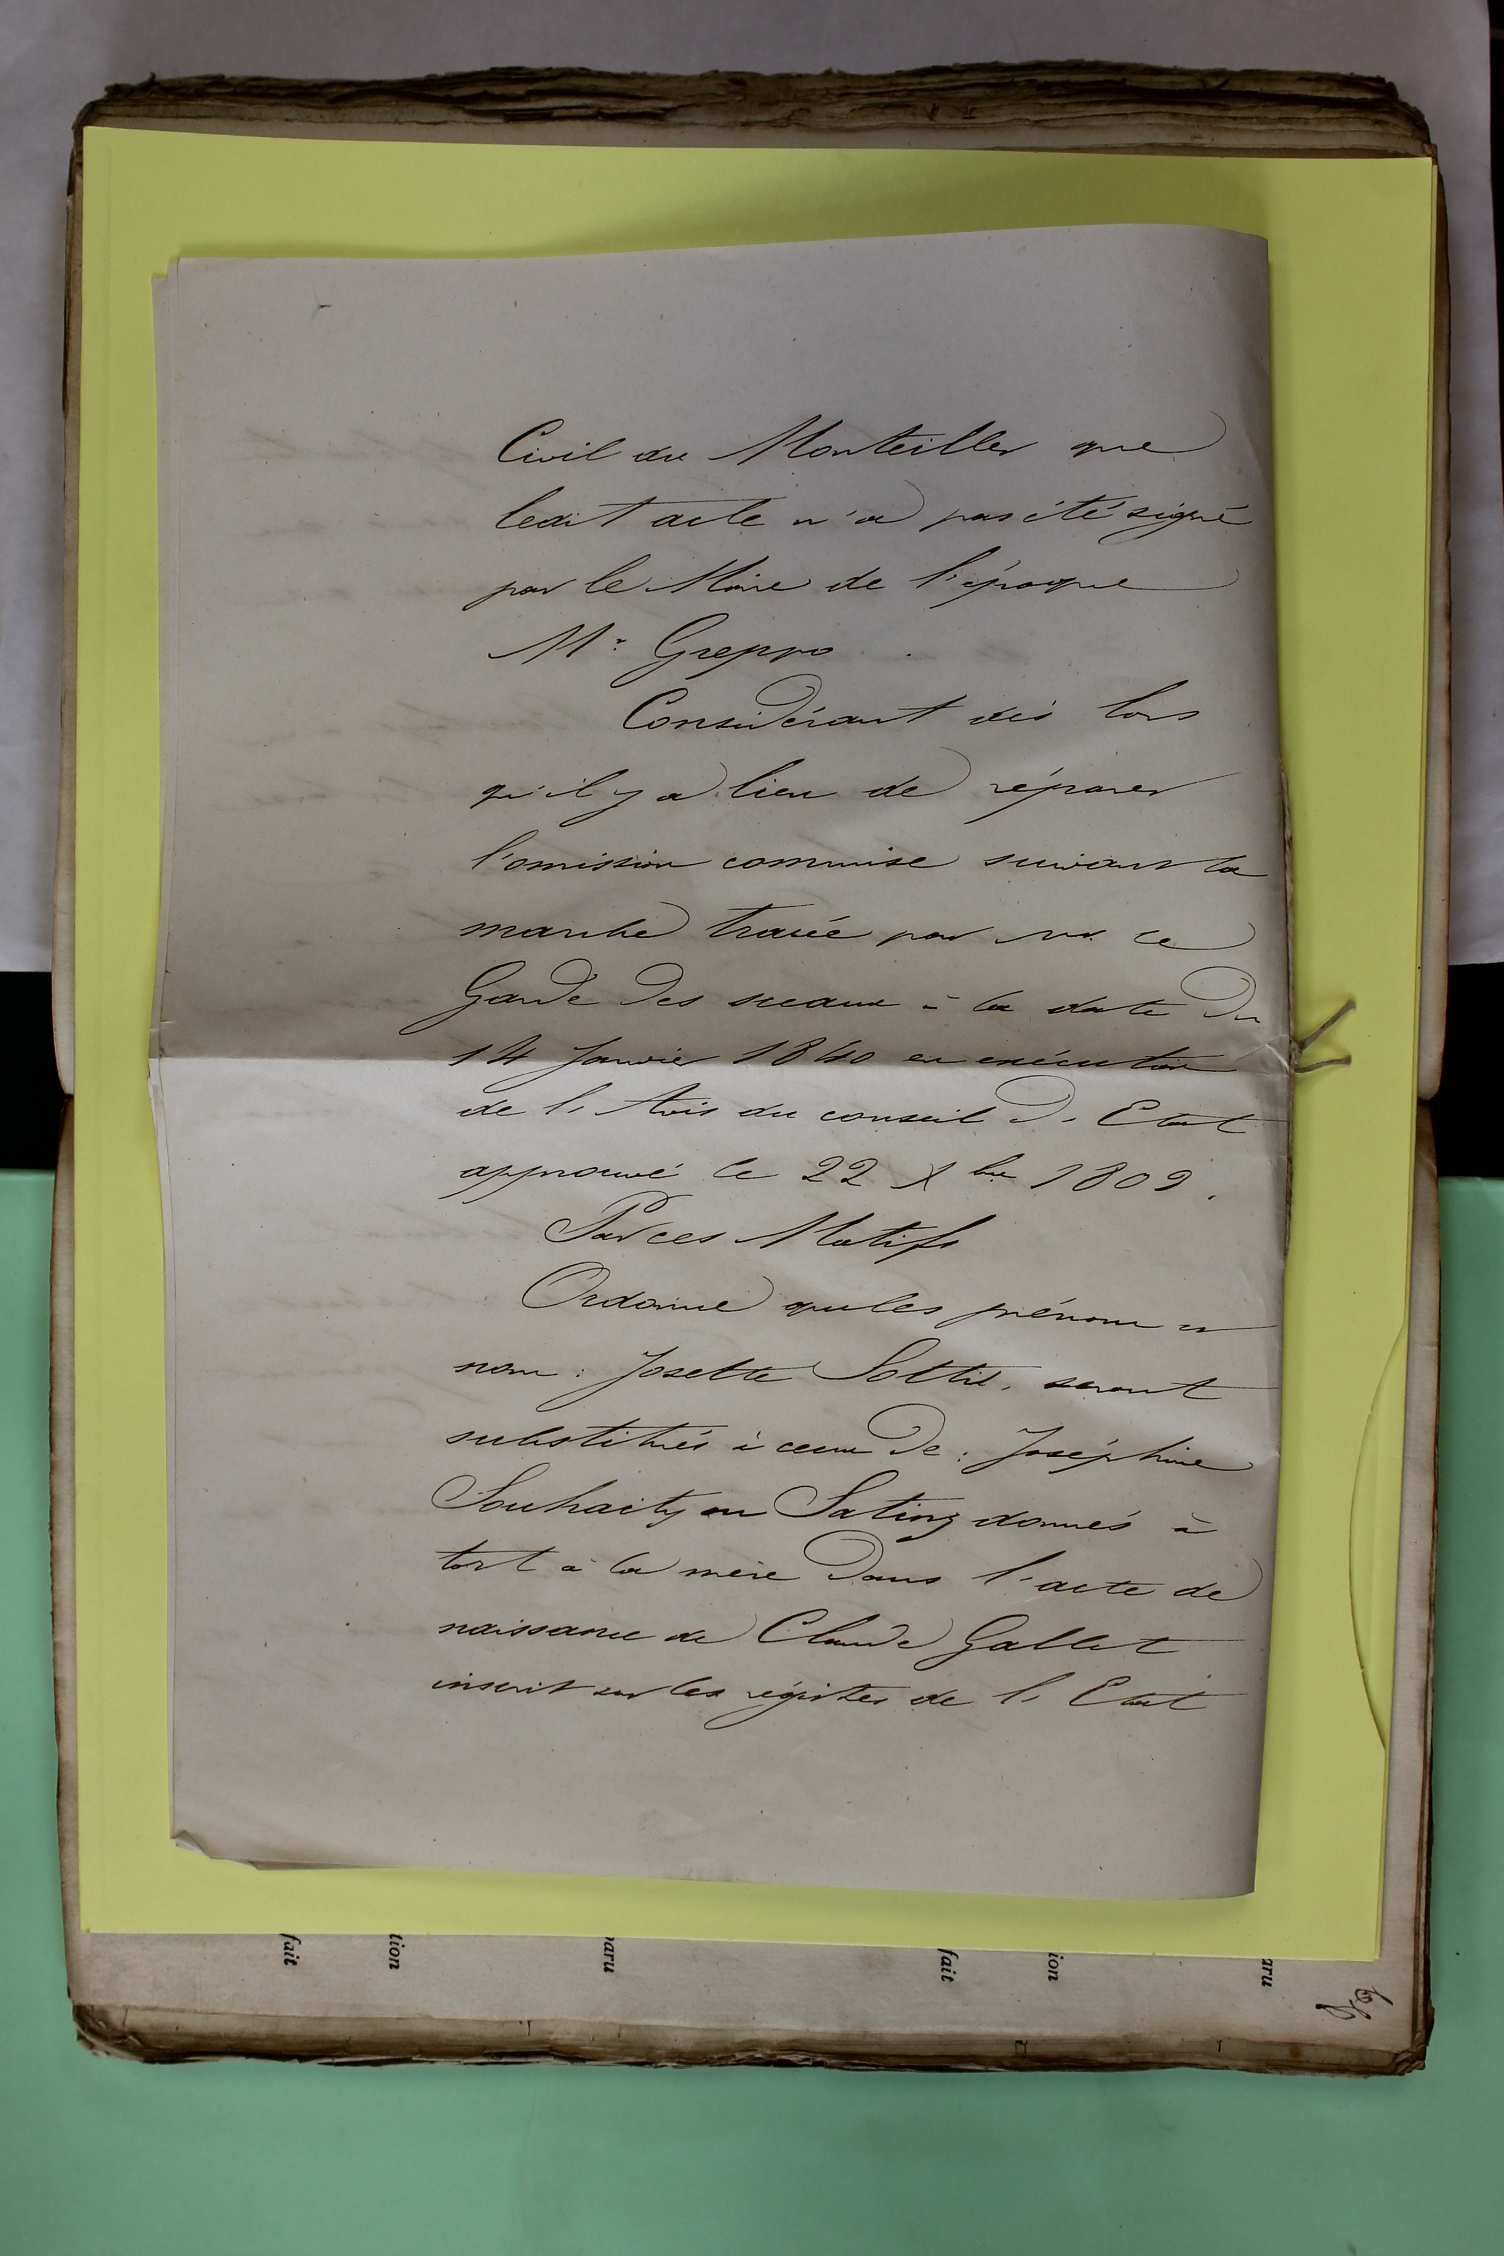 Civil du Monteiller que
ledit acte n'a pas été signé
par le Maire de l'époque
Mr. Greppo.
Considérant dès lors
qu'il y a lieu de réparer
l'omission commise suivant la
marche tracée par Mr. le
Garde des sceaux à la date du
14 Janvier 1840 en exécution
de l'Avis du conseil d'Etat
approuvé le 22 Xbre 1809.
Par ces Motifs
Ordonne que les prénom et
nom : Josette Sottié, seront
substitués à ceux de : Joséphine
Souhaity ou Satiny donnés à
tort à la mère dans l'acte de
naissance de Claude Gallet
inscrit sur les régistres de l'Etat
fait
tion
aru
fait
ion
aru